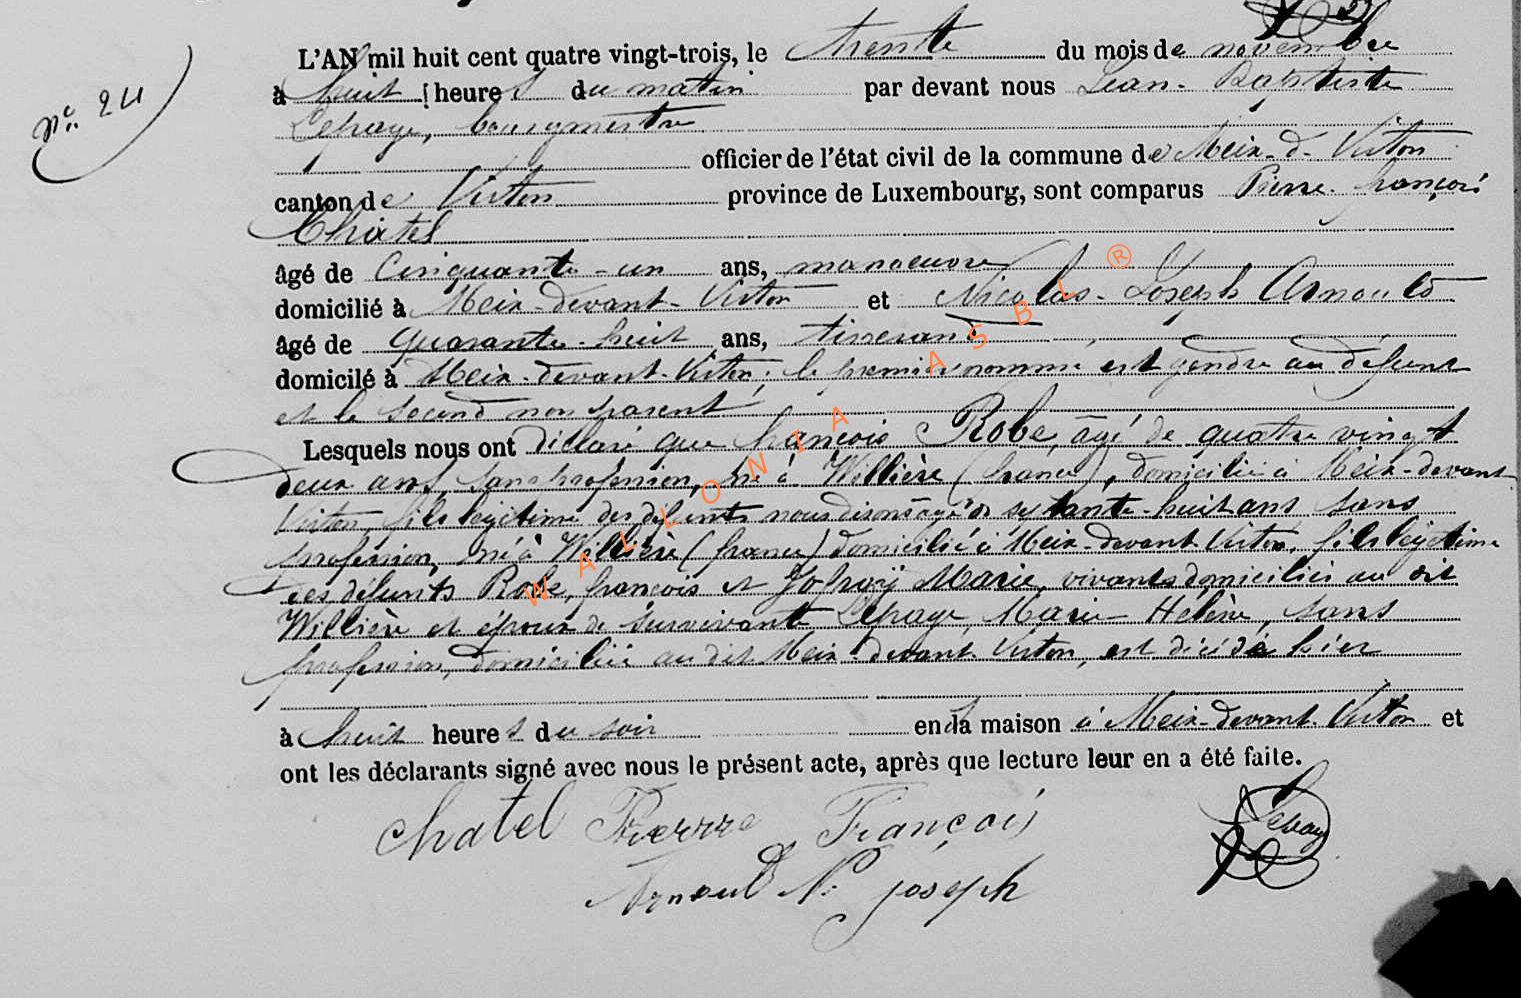 N° 24
L'AN mil huit cent quatre vingt-trois, le trente du mois de novembre
à huit heures du matin par devant nous Jean-Baptiste
Lepage, bourgmestre
officier de l'état civil de la commune de Meix-d-Virton
canton de Virton province de Luxembourg, sont comparus Pierre-françois
Châtel
âgé de Cinquante-un ans, manoeuvre
domicilié à Meix-devant-Virton et Nicolas-Joseph Arnould
âgé de quarante-huit ans, tisserand
domicilé à Meix-devant-Virton; le premier nommé est gendre au défunt
et le second non parent
Lesquels nous ont déclaré que françois Robe, âgé de quatre vingt
deux ans, sans profession, né à Willière (france), domicilié à Meix-devant
Virton, fils légitime des défunts nous disons âgé de septante-huit ans sans
profession, né à Willière (france) domicilié à Meix-devant Virton, fils légitime
des défunts Robe, françois et Marie, vivants domiciliés au dit
Willière et époux de survivante Lepage, Marie-Helène, sans
profession, domiciliée au dit Meix-devant-Virton, est décédé hier
à huit heures du soir en sa maison à Meix-devant-Virton et
ont les déclarants signé avec nous le présent acte, après que lecture leur en a été faite.
Chatel Pierre François
Lepage
Arnould N. joseph
WALLONIA ASBL ®